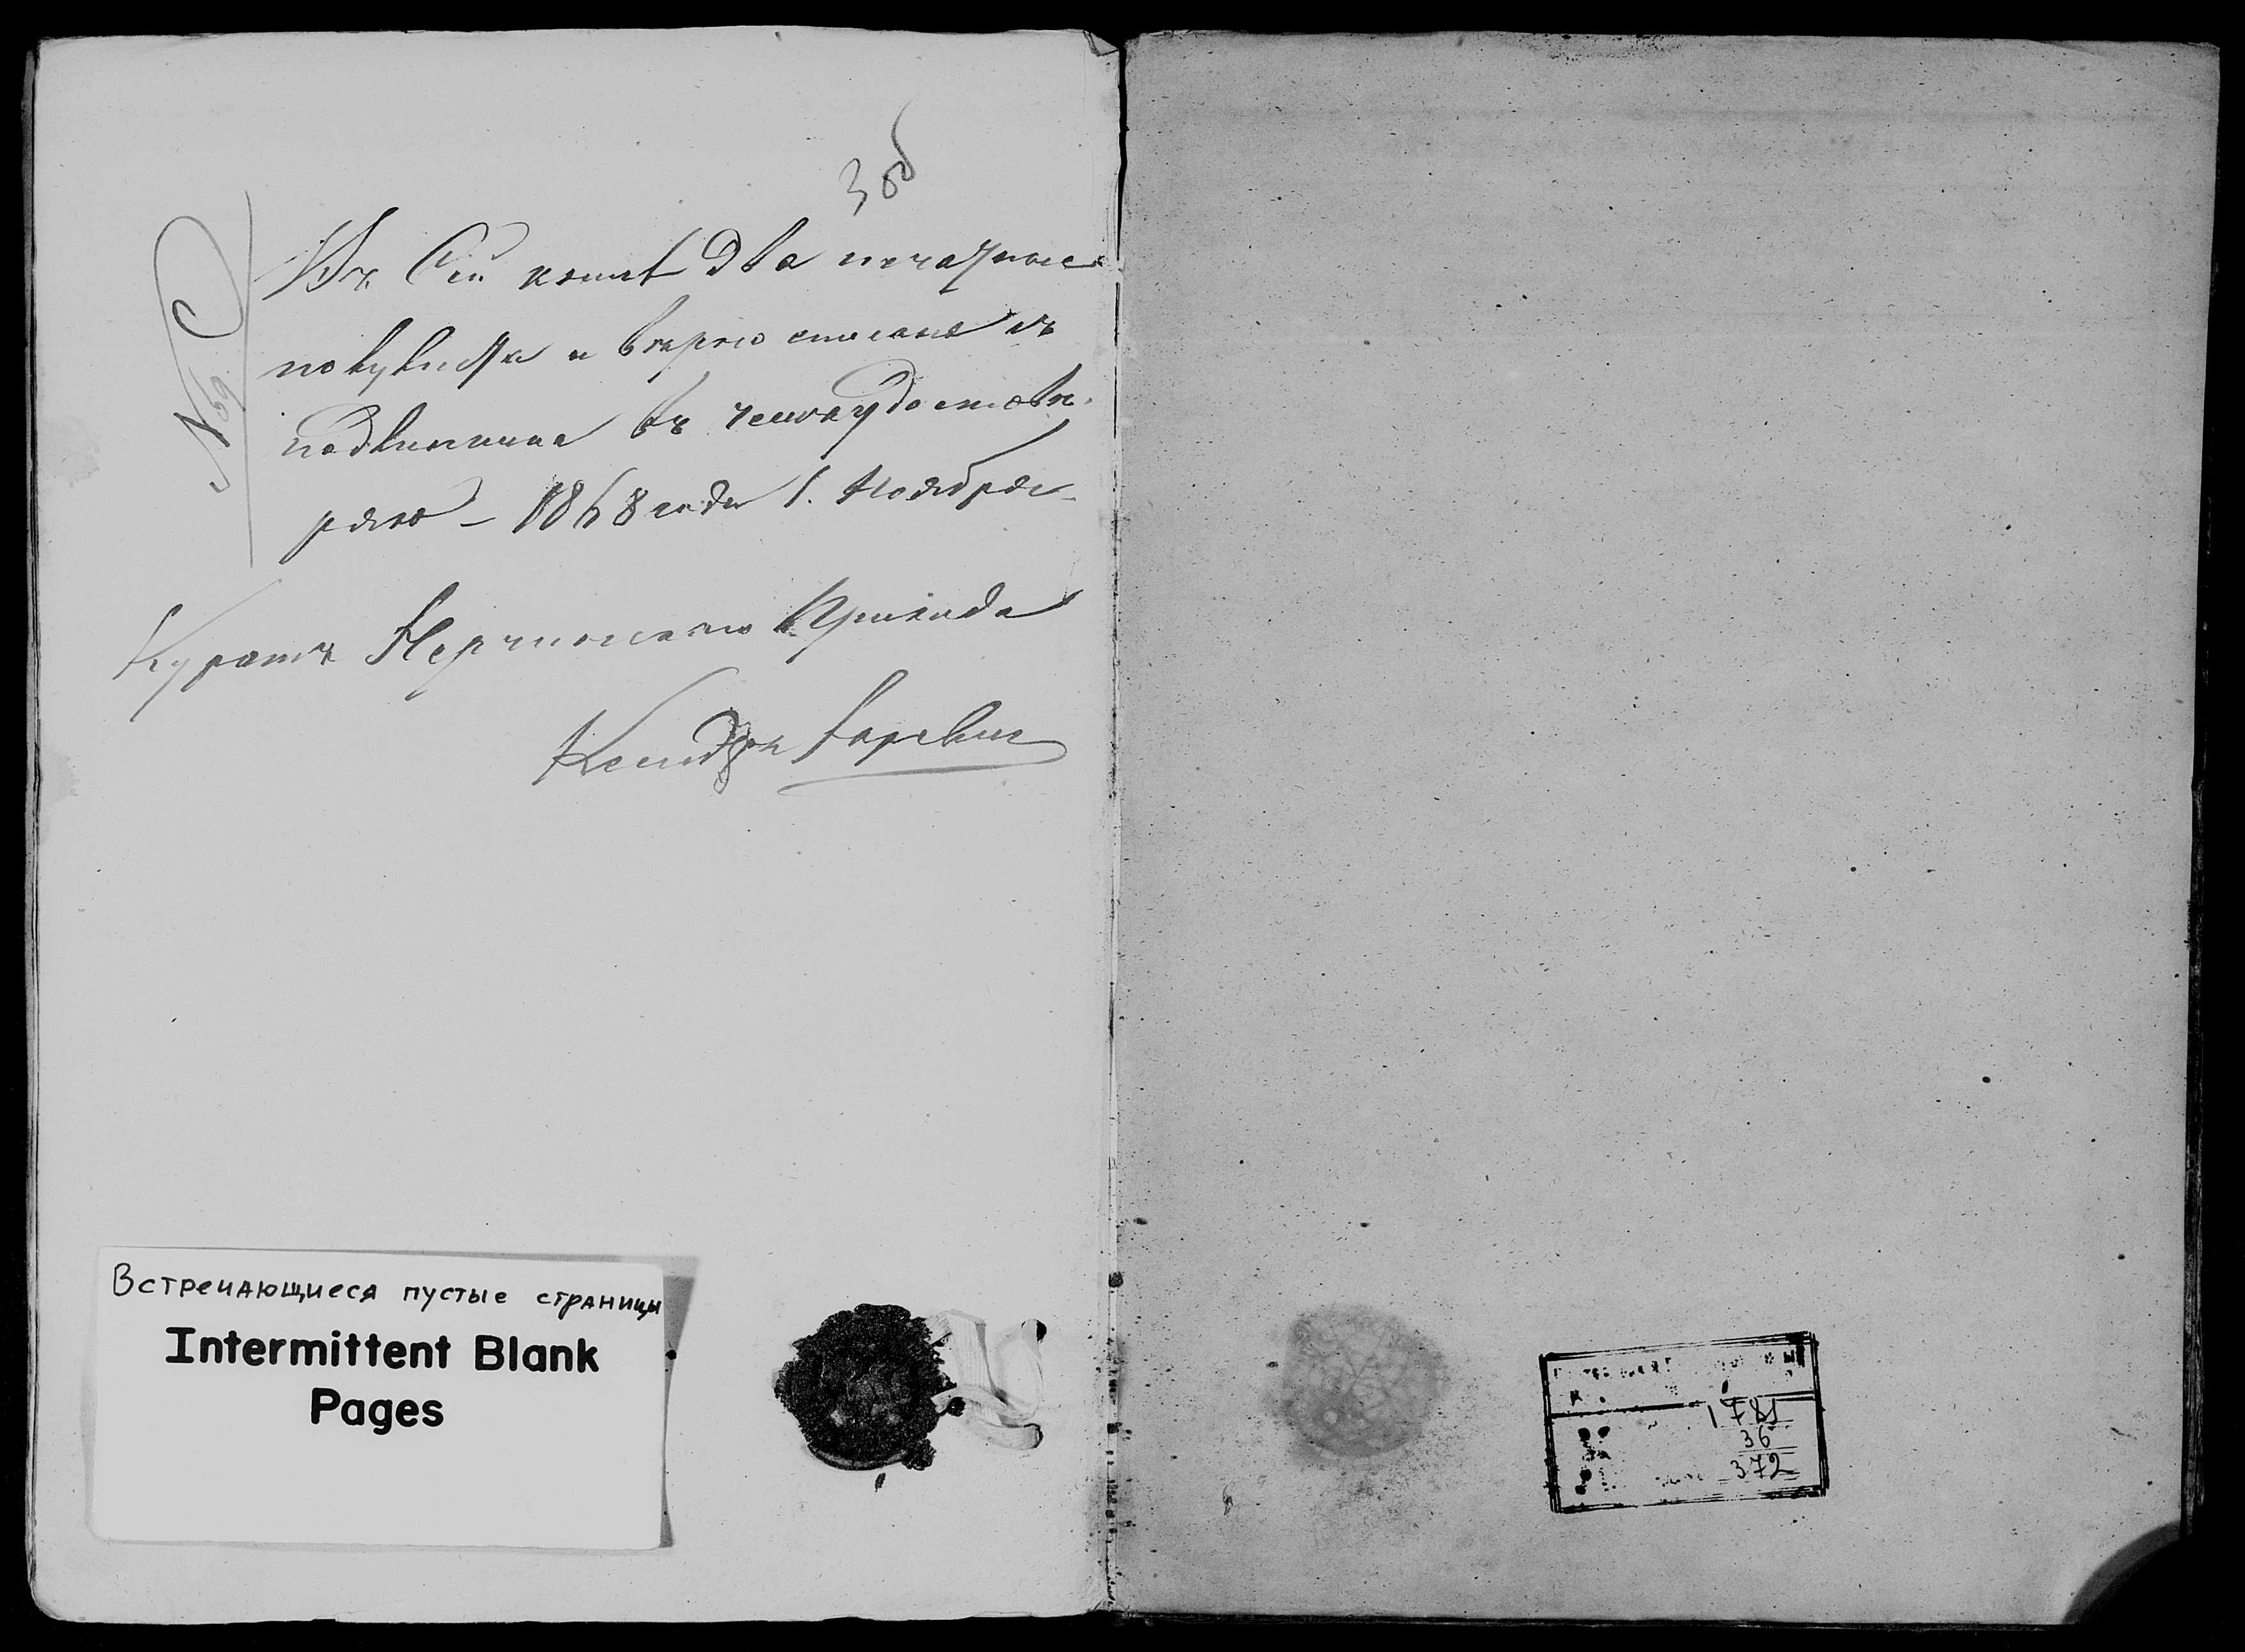 3 об
№ 69.
Въ Сей копіи два печатные
полулиста и вѣрно списана съ
подлинника въ чемъ удостовѣ-
ряю – 1868 года 1. Ноября
Куратъ Нерчинскаго Прихода
Встречающиеся пустые страницы
Intermittent Blank
Pages
1781
36
372